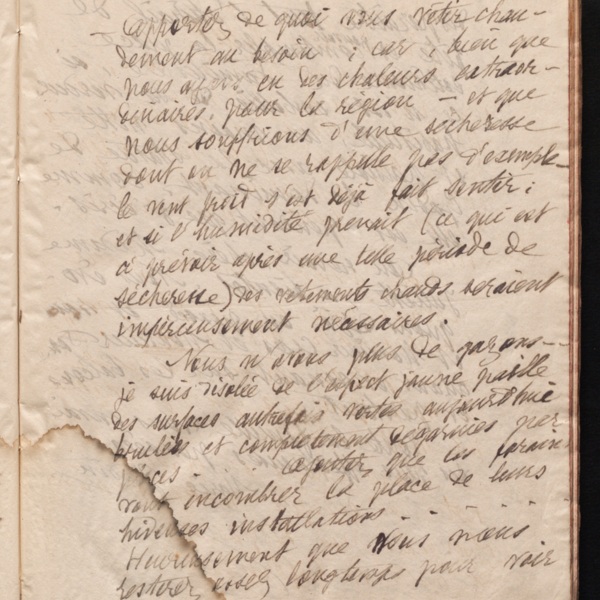 – apportez de quoi vous vêtir chau-
dement au besoin ; car, bien que
nous ayons eu des chaleurs extraor-
dinaires pour la région – et que
nous souffrions d'une sécheresse
dont on ne se rappelle pas d'exemple –
le vent froid s'est déjà fait sentir ;
et si l'humidité prenait (ce qui est
à prévoir après une telle période de
sécheresse) des vêtements chauds seraient
impérieusement nécessaires.
Nous n'avons plus de gazons –
je suis désolée de l'aspect jaune paille
des surfaces autrefois vertes aujourd'hui
brulées et complètement dégarnies par
places. ajoutez que les forains
vont incombrer la place de leurs
hideuses installations.
Heureusement que vous nous
resterez assez longtemps pour voir